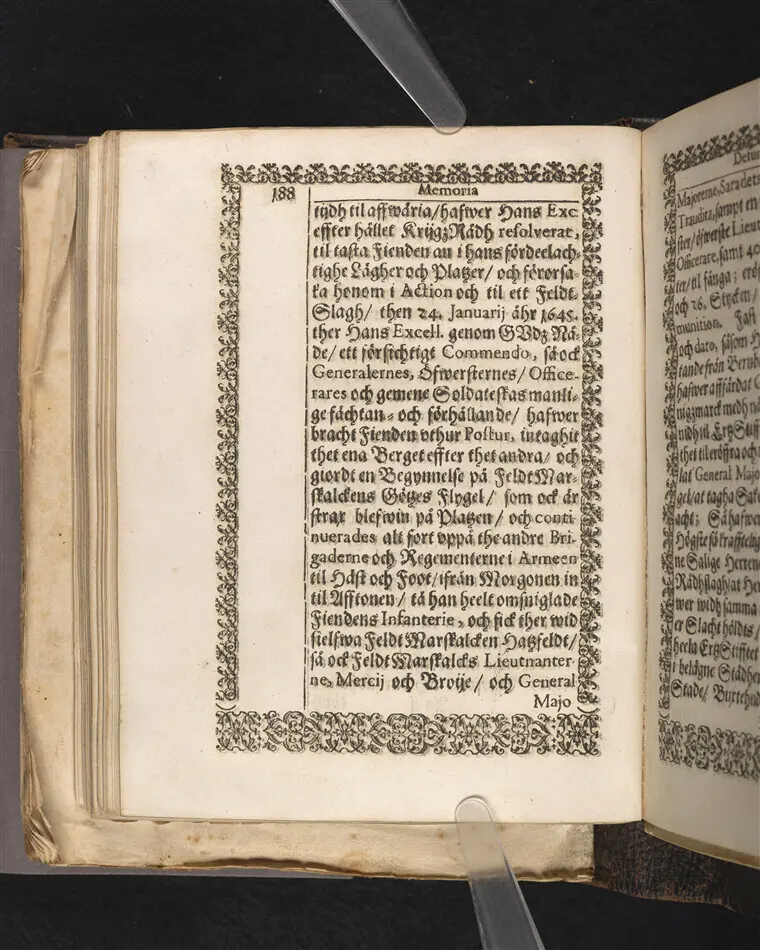 188
Memoria
tijdh til affwäria/hafwer Hans Exc.
effter hållet KrijgzRådh resolverat,
til tasta Fienden an i hans fördeelach-
tighe Lägher och Platzer/ och förorsa-
ka honom i Action och til ett Feldt-
Slagh/ then 24. Januarij åhr 1645.
ther Hans Excell. genom GUdz Nå-
de/ ett försichtigt Commendo, så ock
Generalernes, Öfwersternes/ Office-
rares och gemene Soldateskas manli-
ge fächtan- och förhållande/ hafwer
bracht Fienden vthur Postur, intaghit
thet ena Berget effter thet andra/ och
giordt en Begynnelse på FeldtMar-
skalckens Götzes Flygel/ som ock är
strax blefwin på Platzen/ och conti-
nuerades alt fort vppå the andre Bri-
gaderne och Regementerne i Armeen
til Häst och Foot/ ifrån Morgonen in
til Afftonen/ tå han heelt omsuiglade
Fiendens Infanterie, och fick ther wid
sielfwa FeldtMarskalcken Hatzfeldt/
så ock FeldtMarskalcks Lieutnanter-
ne, Mercij och Broije/ och General
Majo
Majorerne,
Trauditz, sampt en
ster/ öfwerste Lieut
Officerare, samt 40
ter/ til fånga; erö
och 26. Stycken/
munition.
och dato, såsom H
tande från Bernb
hafwer affärdat G
nigzmarck medh nå
nidh til ErtzStiff
thet til eröffra och
lat General Majo
gel/ at tagha
acht; Så hafwer
Högste så krafftelig
ne Salige Herren
Rådhslagh/ at Her
wer widh samma
er Slacht höldts/
heela ErtzStifftet
i belägne Städher
Stade/ Buxtehud